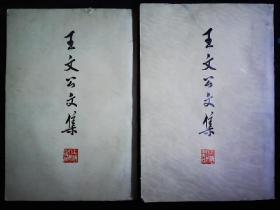 王文公文集
王文公文集